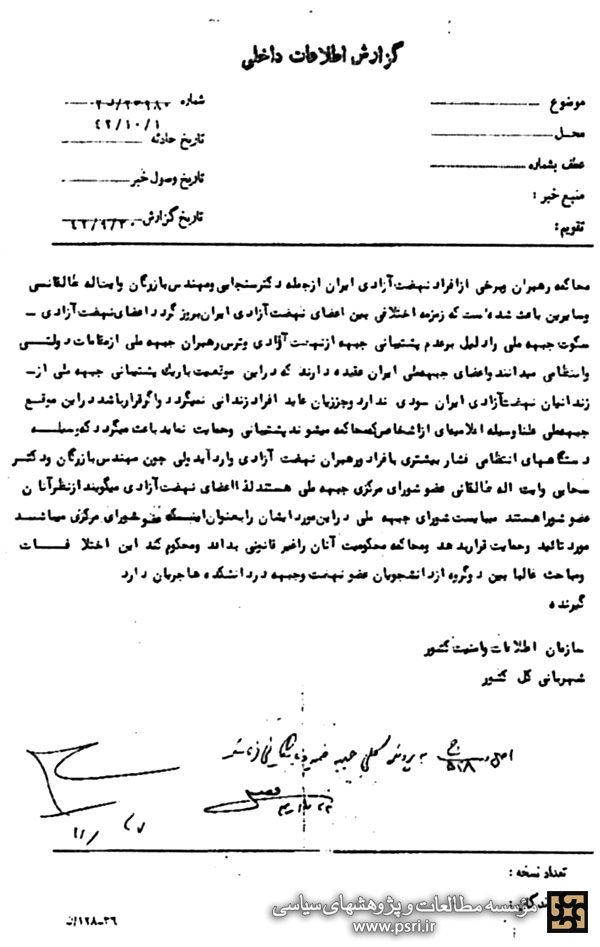 گزارش اطلاعات داخلی
موضوع
شماره
۴۲/۱۰/۱
محل
تاریخ حادثه
عطف بشماره
تاریخ وصول خبر
منبع خبر :
تاریخ گزارش ۴۲/۹/۳۰
تقویم :
محاکمه رهبران وبرخی ازافراد نهضت آزادی ایران ازجمله دکترسنجابی ومهندس بازرگان وایتاله طالقانسی
وسایرین باعث شده است که زمزمه اختلافی بین اعضای نهضت آزادی ایران بروز گرد د اعضای نهضت آزادی ـ
سکوت جبهه ملی راد لیل برعدم پشتیبانی جبهه ازنهضت آزادی وترس رهبران جبهه ملی ازمقامات د ولتی
وانتظامی میدانند واعضای جبهه ملی ایران عقیده دارند که دراین موقعیت باریک پشتیبانی جبهه ملی ازـ
زندانیان نهضت آزادی ایران سودی ندارد وجززیان عاید افراد زندانی نمیگرد د واگرقرارباشد دراین موقع
جبهه ملی علنا وسیله اعلامیه ای ازاشخاص که محاکمه میشوند پشتیبانی وحمایت نماید باعث میگرد د که وسیلـه
د ستگاههای انتظامی فشار بیشتری بافراد ورهبران نهضت آزادی وارد آید ولی چون مهندس بازرگان ودکتر
سحابی وایت اله طالقانی عضو شورای مرکزی جبهه ملی هستند لذا اعضای نهضت آزادی میگویند ازنظرآنان
عضو شورا هستند میبایست شورای جبهه ملی دراین مورد ایشان رابعنوان اینکه عضو شورای مرکزی میباشنـد
مورد تائید وحمایت قرارد هد ومحاکمه محکومیت آنان راغیر قانونی بداند ومحکوم کند این اختلا فــات
ومباحث غالبا بین د وگروه ازد انشجویان عضو نهضت وجبهه درد انشکده هاجریان دارد
گیرنده
سازمان اطلاعات وامنیت کشور
شهربانی کل کشور
تعداد نسخه :
موسسه مطالعات و پژوهشهای سیاسی
www.psri.ir